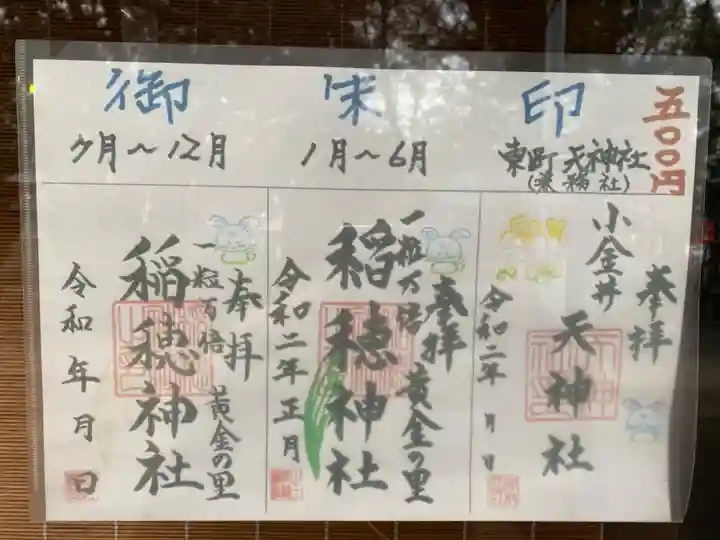 御朱印
五〇〇円
7月～12月
1月～6月
東町天神社
(兼務社)
奉拝
小金井
天神社
令和二年 月 日
奉拝
一粒万倍
黄金の里
稲穂神社
令和二年正月
奉拝
一粒百倍
黄金の里
稲穂神社
令和 年 月 日